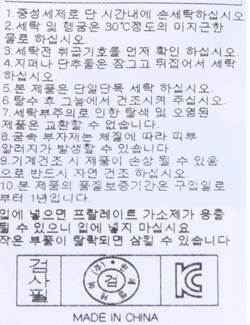 1.중성세제로 단 시간내에 손세탁하십시오
2.세탁 및 헹굼은 30℃정도의 미지근한
물로 하십시오.
3.세탁전 취급기호를 먼저 확인 하십시오
4.지퍼나 단추들은 잠그고 뒤집어서 세탁
하십시오.
5.본 제품은 단일단독 세탁 하십시오.
6.탈수 후 그늘에서 건조시켜 주십시오.
7.세탁부주의로 인한 탈색 및 오염된
제품은 교환할 수 없습니다.
8.금속 부자재는 체질에 따라 피부
알러지가 발생할 수 있습니다.
9.기계건조 시 제품이 손상 될 수 있음
으로 반드시 자연 건조 하십시오.
10.본 제품의 품질보증기간은 구입일로
부터 1년입니다.
입에 넣으면 프탈레이트 가소제가 용출
될 수 있으니 입에 넣지 마십시요
작은 부품이 탈락되면 삼킬 수 있습니다
검사필
검
KC
MADE IN CHINA